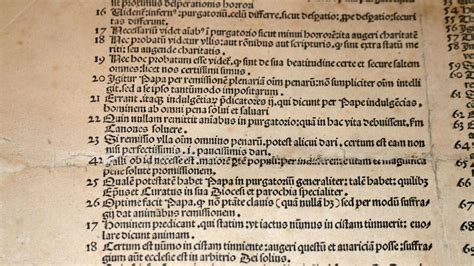 proximum desperationis horrori
16 Videnť: infernꝰ: purgatoriū: celū differre. sicut despatio: ꝓpe despatio: securitas differunt.
17 Necessariū videť aīabꝰ ī purgatorio sicut minui horrorē: ita augeri charitatē
18 Nec probatū videtur vllis: aut rōnibus aut scripturis. ꝙ sint extra statū meriti seu augende charitatis.
19 Nec hoc probatum esse videť. ꝙ sint de sua beatitudine certe et secure saltem oēs: licet nos certissimi simus.
20 Igitur Papa per remissionē plenariā oīm penarū: nō simpliciter oīm intelligit. sed a seipso tantūmodo impositarum.
21 Errant. itaqꝫ indulgētiaꝝ p̄dicatores ij. qui dicunt per Pape indulgētias. hominem ab omni pena solui et saluari
22 Quin nullam remittit aniabus in purgatorio: quā in hac vita debuissent. sm̄ Canones soluere.
23 Si remissio vlla oīm omnino penarū: potest alicui dari. certum est eam non nisi perfectissimis .i. paucissimis dari.
42 Falli ob id necesse est. maiorē partē populi: per indifferentē illam et magnificā pene solute promissionem.
25 Qualē potestatē habet Papa in purgatoriū generaliter: talē habet: quilibꝫ Epūs et Curatus in sua Diocesi et parochia specialiter.
26 Optime facit Papa. ꝙ nō ptāte clauis (quā nullā hꝫ) sed per modū suffragij dat animabus remissionem.
27 Hominem predicant. qui statim: vt iactus nūmus in cistam tinnierit: euolare dicunt animam.
18 Certum est nūmo in cistam tinniente: augeri questū et auariciā posse: suffragium aūt ecclesie est in arbitrio Dei solius.